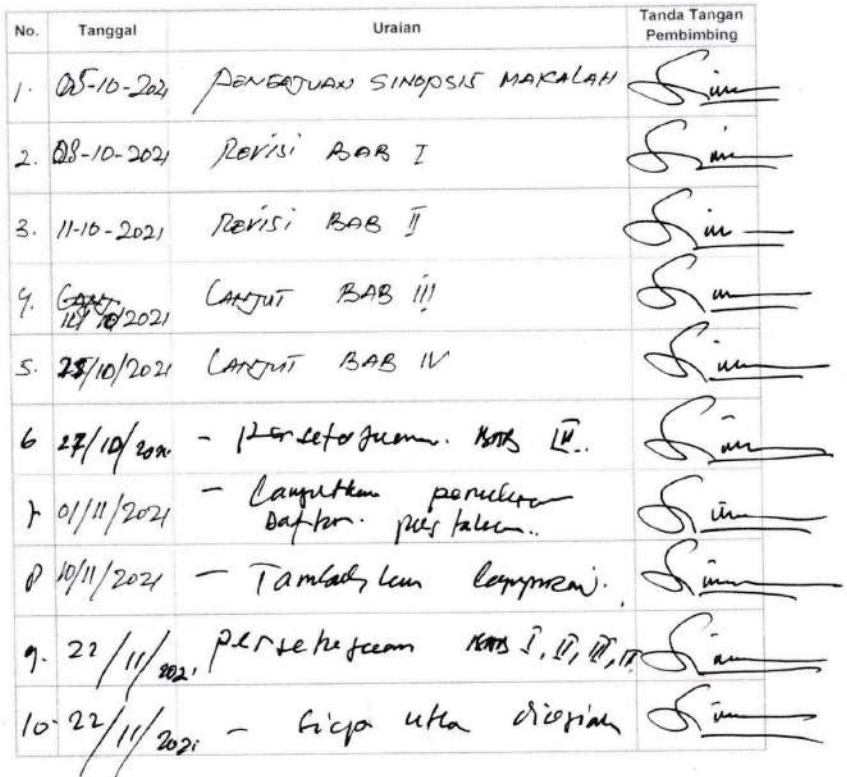 No. Tanggal Uraian Tanda Tangan
Pembimbing
1. 05-10-2021 PENGAJUAN SINOPSIS MAKALAH
2. 08-10-2021 Revisi BAB I
3. 11-10-2021 Revisi BAB II
4. 
/10/2021 LANJUT BAB III
5. 25/10/2021 LANJUT BAB IV
6 27/10/2021 - Persetujuan. BAB IV..
7 01/11/2021 - Lanjutkan penulisan
Daftar. pustaka..
8 10/11/2021 - Tambahkan lampiran.
9. 22/11/2021 persetujuan BAB I, II, III, IV
10. 22/11/2021 - Siap utk diujiah